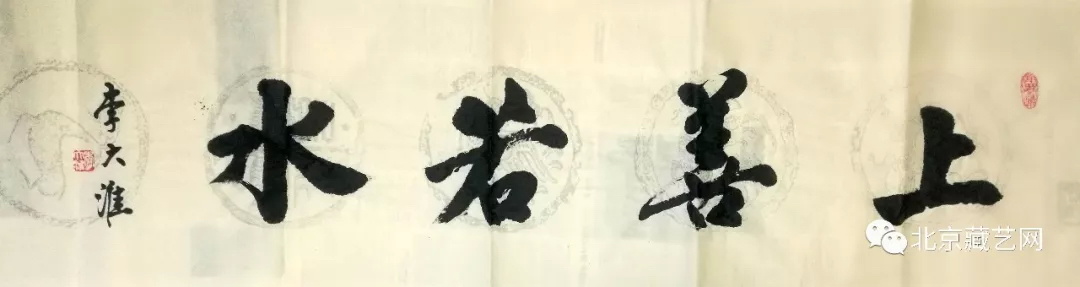 上善若水
李大淮
北京藏艺网